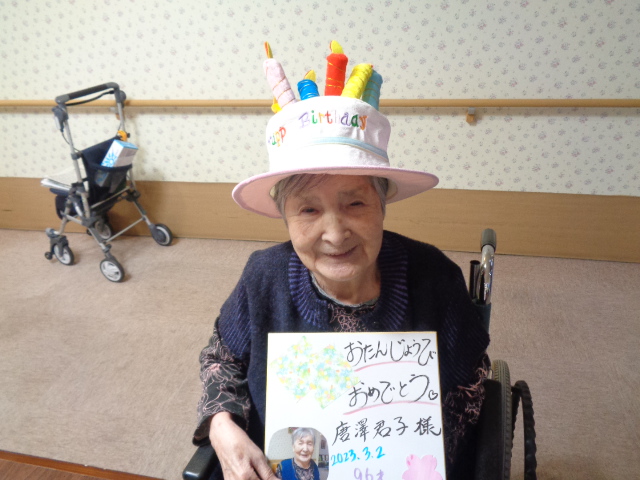 Happy Birthday
おたんじょうび
おめでとう
唐澤君子様
2023.3.2
96才